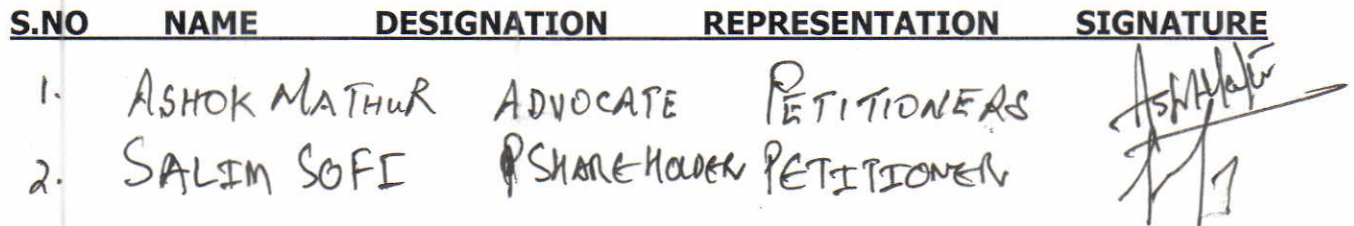 S.NO NAME DESIGNATION REPRESENTATION SIGNATURE
1. ASHOK MATHUR ADVOCATE PETITIONERS
2. SALIM SOFI SHAREHOLDER PETITIONER